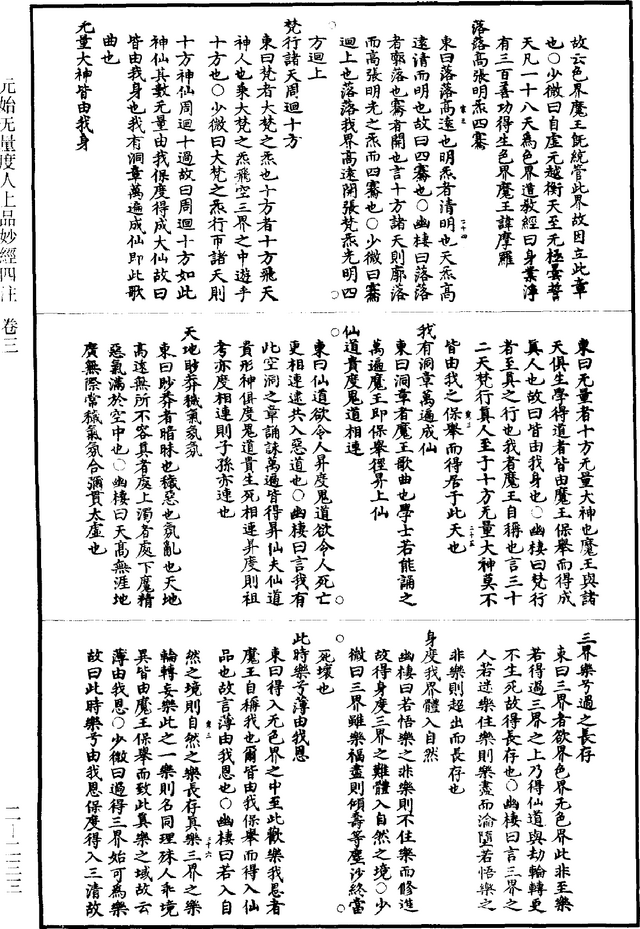 故云色界魔王旣統管此界故因立此章
也〇少微曰自虛无越衡天至无極曇誓
天凡一十八天爲色界道教經曰身業淨
有三百善功得生色界魔王諱摩羅
落落高張明炁四騫
東曰落落高遠也明炁者清明也天炁高
遠清而明也故曰四騫也〇幽棲曰落落
者廓落也騫者開也言十方諸天則廓落
而高張明光之炁而四騫也〇少微曰騫
迴上也落落我界高遠開張梵炁光明四
方迴上
梵行諸天周迴十方
東曰梵者大梵之炁也十方者十方飛天
神人也乘大梵之炁飛空三界之中遊乎
十方也〇少微曰大梵之炁行帀諸天則
十方神仙周迴十過故曰周迴十方如此
神仙其數无量由我保度得成大仙故曰
皆由我身也我有洞章萬遍成仙即此歌
曲也
无量大神皆由我身
東曰无量者十方无量大神也魔王與諸
天俱生學得道者皆由魔王保舉而得成
真人也故曰皆由我身也〇幽棲曰梵行
者至真之行也我者魔王自稱也言三十
二天梵行真人至于十方无量大神莫不
皆由我之保舉而得居于此天也
我有洞章萬遍成仙
東曰洞章者魔王歌曲也學士若能誦之
萬遍魔王即保舉徑昇上仙
仙道貴度鬼道相連
東曰仙道欲令人昇度鬼道欲令人死亡
更相連逮共入惡道也〇幽棲曰言我有
此空洞之章誦詠萬遍皆得昇仙夫仙道
貴形神俱度鬼道貴生死相連昇度則祖
考亦度相連則子孫亦連也
天地眇莽穢氣氛氛
東曰眇莽者暗昧也穢惡也氛亂也天地
高遠無所不容真者處上濁者處下魔精
惡氣滿於空中也〇幽棲曰天高無涯地
廣無際常穢氣氛合瀰貫太虛也
三界樂兮過之長存
東曰三界者欲界色界无色界此非至樂
若得過三界之上乃得仙道與劫輪轉更
不生死故得長存也〇幽棲曰言三界之
人若迷樂住樂則樂盡而淪墮若悟樂之
非樂則超出而長存也
身度我界體入自然
幽棲曰若悟樂之非樂則不住樂而修進
故得身度三界之難體入自然之境〇少
微曰三界雖樂福盡則傾壽等塵沙終當
死壞也
此時樂兮薄由我恩
東曰得入无色界之中至此歡樂我恩者
魔王自稱我也爾皆由我保舉而得入仙
品也故言薄由我恩也〇幽棲曰若入自
然之境則自然之樂長存真樂三界之樂
輪轉妄樂此之一樂則名同理殊人乖境
異皆由魔王保舉而致此真樂之域故云
薄由我恩〇少微曰過得三界始可爲樂
故曰此時樂兮由我恩保度得入三清故
元始无量度人上品妙經四注 卷三
二—二二三